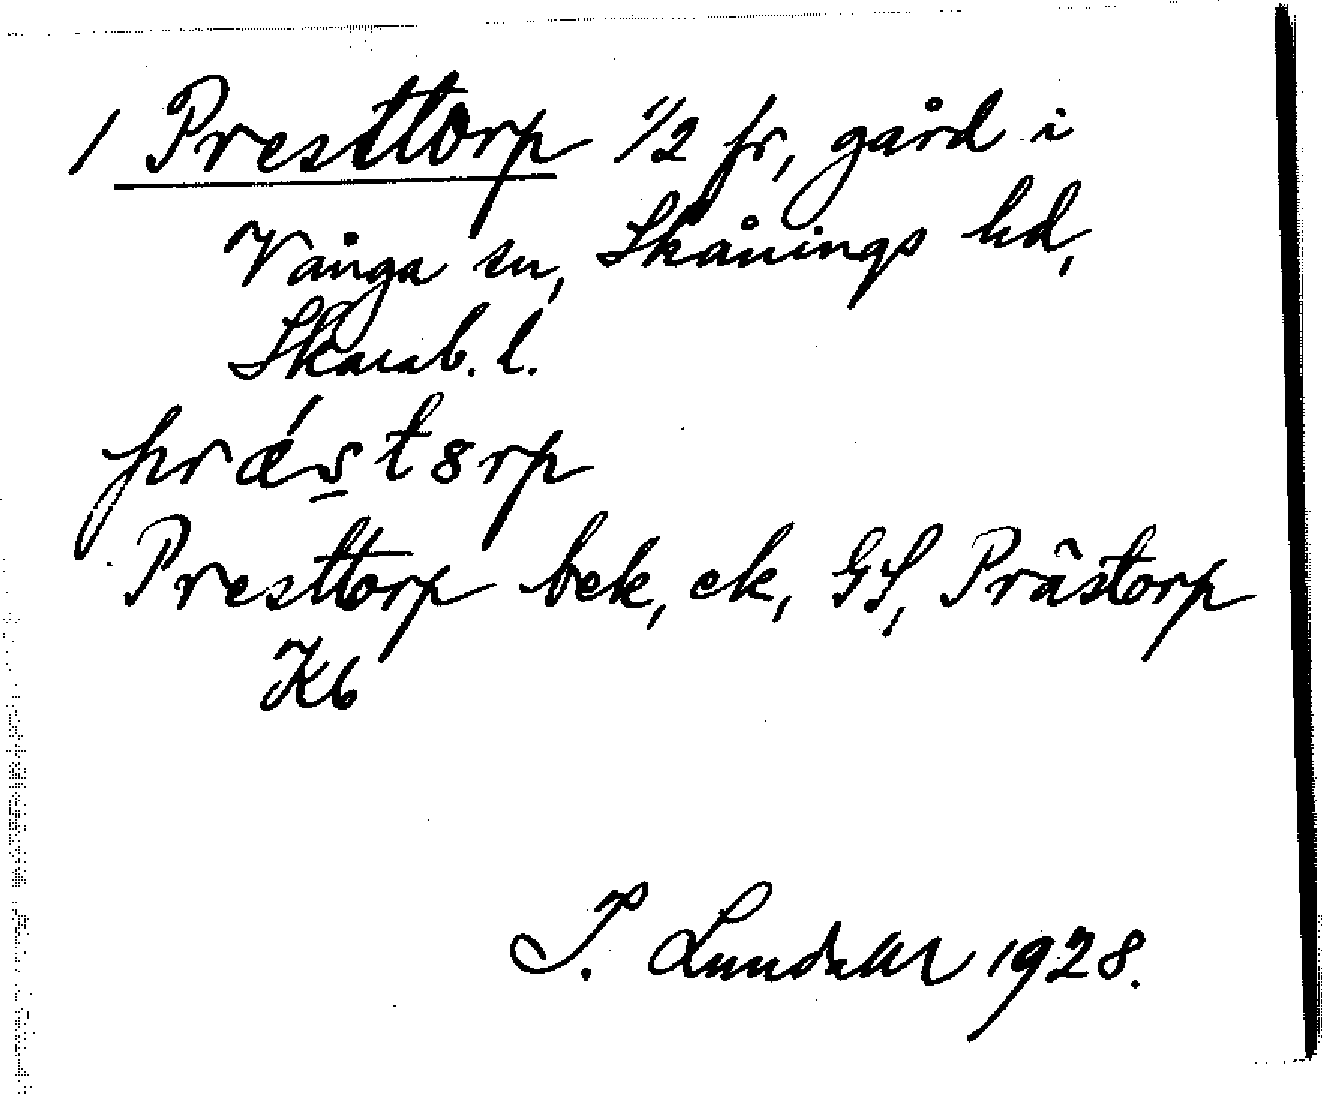 1 Presttorp 1/2 fr, gård i
Vånga sn, Skånings hd,
Skarab. l.
prǽstorp
Presttorp bek, ek, GS, Prästorp
Kb
1928.